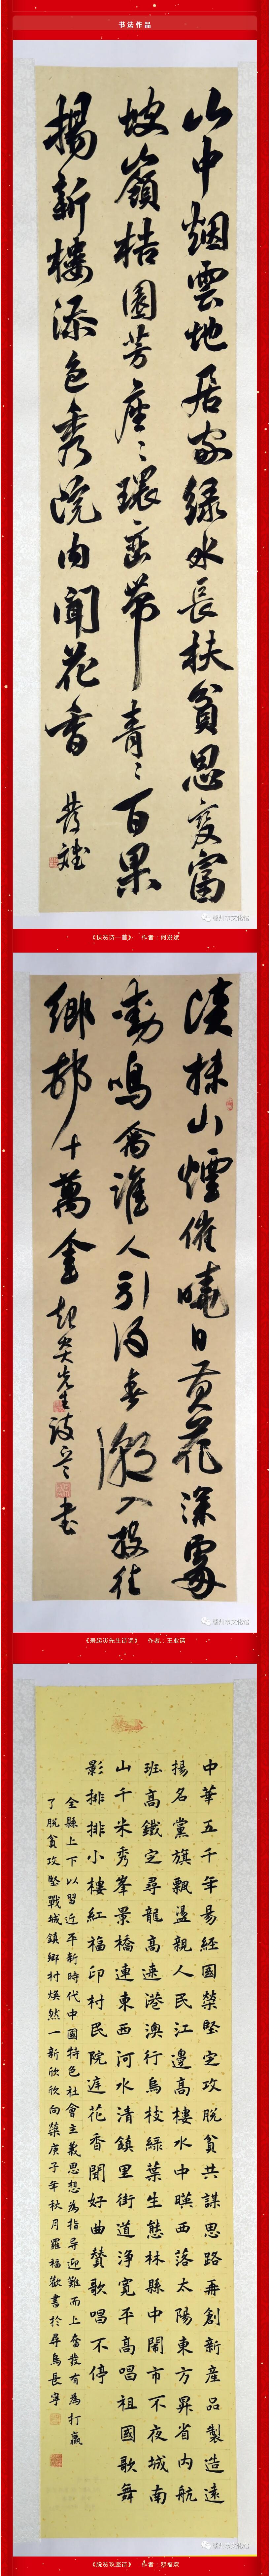 书法作品
山中烟雲地居家绿水長扶貧思变富
坡嶺桔園芳座々環峦带青々百果
揚新樓添色秀院内聞花香
发斌
赣州硒文化馆
《扶贫诗一首》 作者:何发斌
抹山煙催曉日黄花深處
鳴禽誰人引得春潮入放往
鄉村十萬金
赣州硒文化馆
《录起炎先生诗词》 作者:王业倩
中華五千年易經國榮堅定攻脱貧共謀思路再創新産品製造遠
揚名黨旗飄盪親人民江邊高樓水中暎西落太陽東方昇省内航
班高鐵定尋龍高速港澳行烏枝緑葉生態林縣中鬧市不夜城南
山千米秀峯景橋連東西河水清鎮里街道浄寬平高唱祖國歌舞
影排排小樓紅福印村民院庭花香聞好曲贊歌唱不停
全縣上下以習近平新時代中國特色社會主義思想為指导迎難而上奮發有為打贏
了脱貧攻堅戰城鎮鄉村煥然一新欣欣向榮庚子年秋月羅福歡書於尋烏長寧
赣州硒文化馆
《脱贫攻坚路》 作者:罗福欢